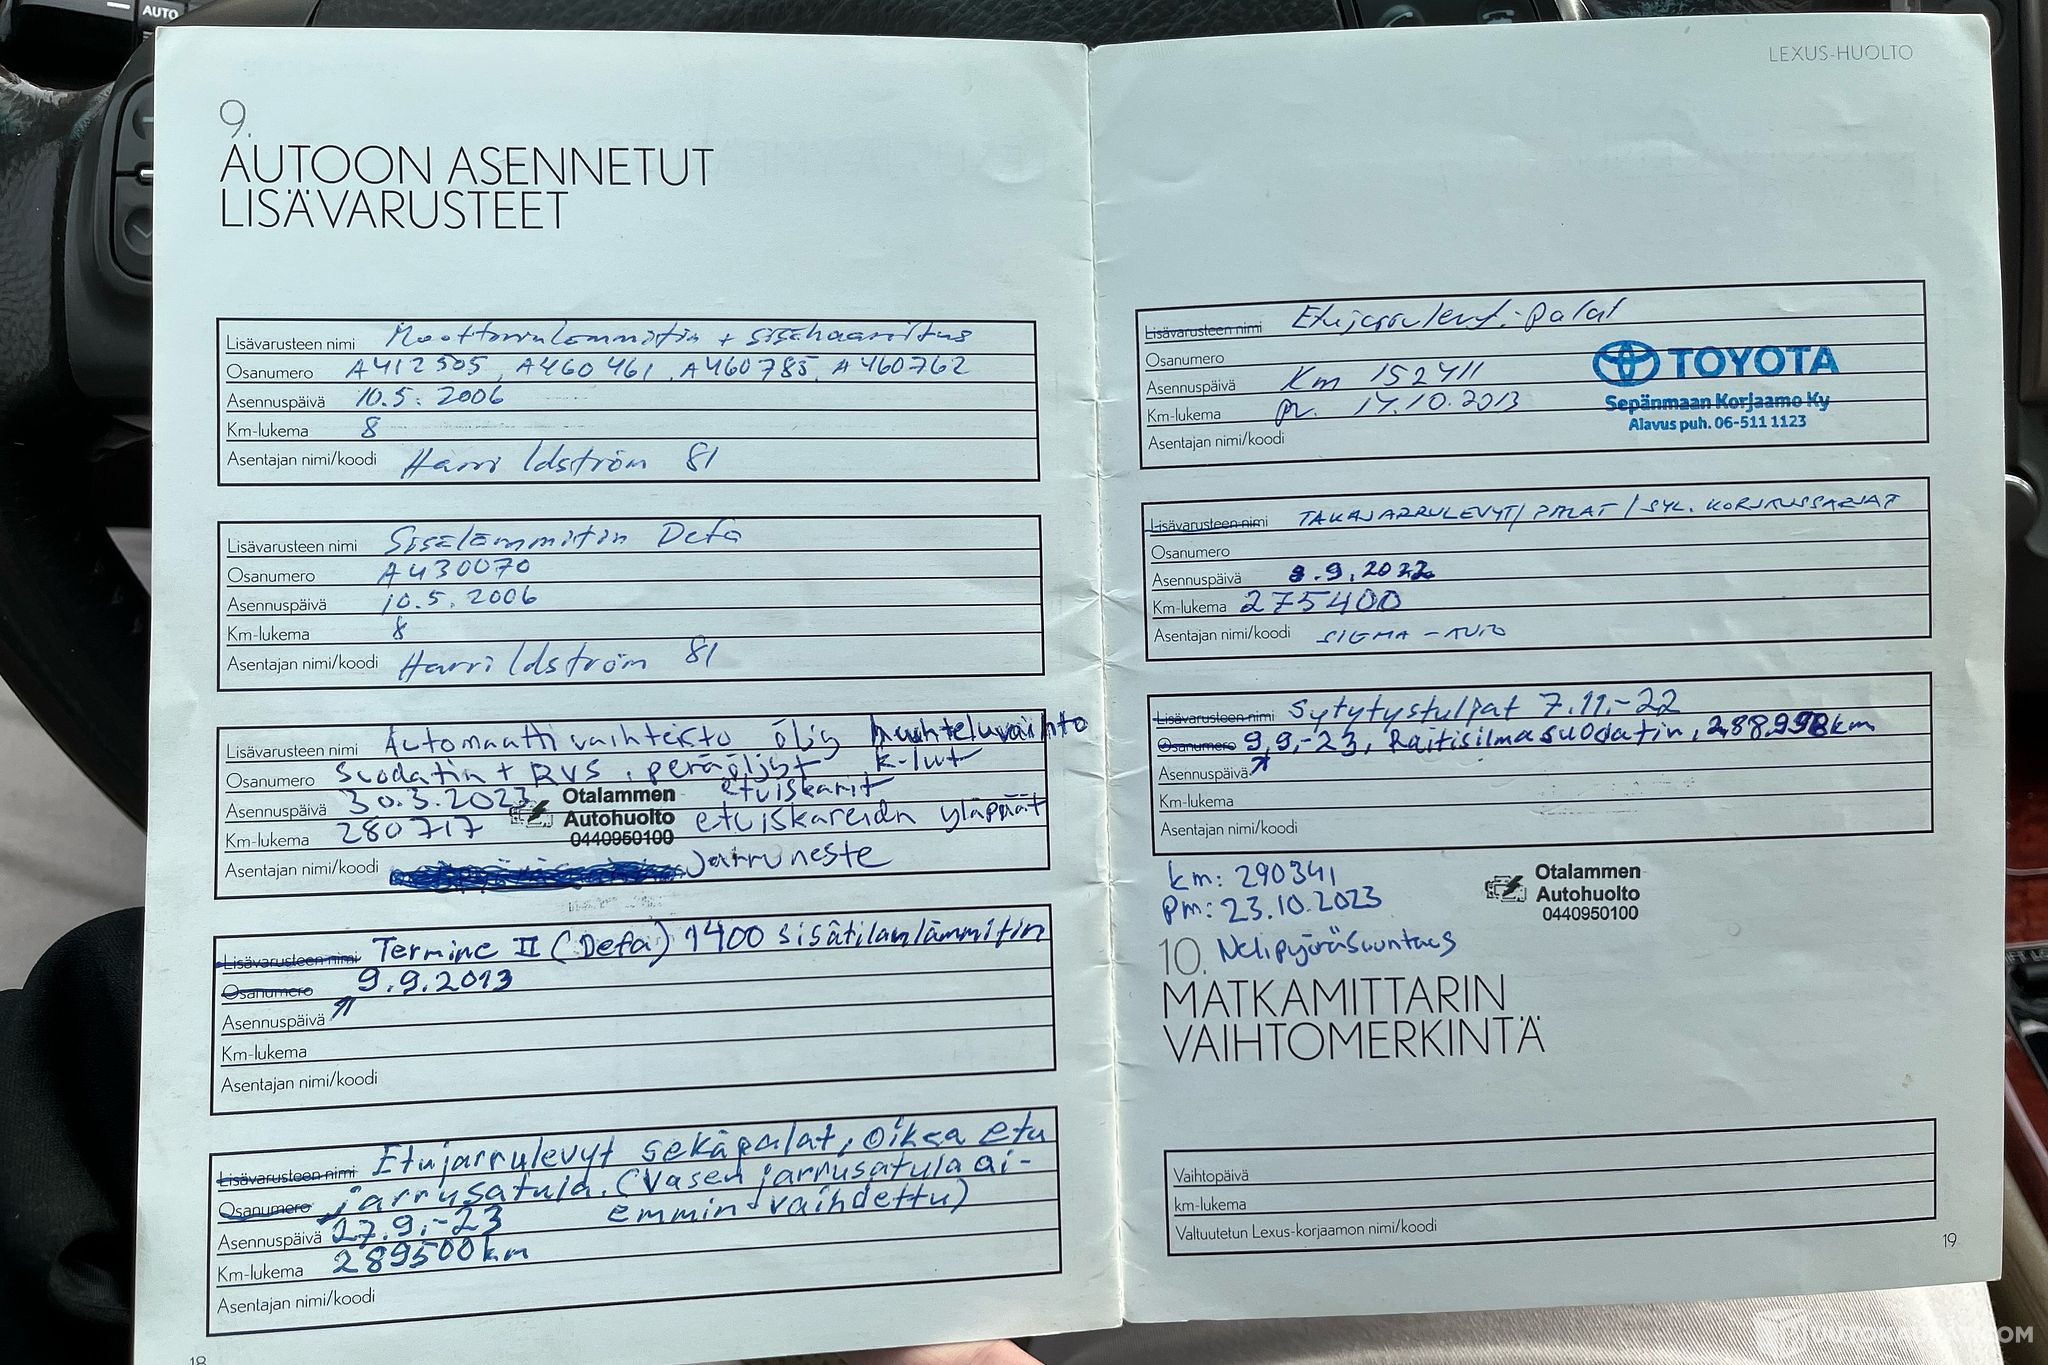 AUTO
9.
AUTOON ASENNETUT
LISÄVARUSTEET
Lisävarusteen nimi Moottorinlämmitin + sisähaaroitus
Osanumero A412505, A460461, A460785, A460762
Asennuspäivä 10.5.2006
Km-lukema 8
Asentajan nimi/koodi Harri Idström 81
Lisävarusteen nimi Sisälämmitin Defa
Osanumero A430070
Asennuspäivä 10.5.2006
Km-lukema 8
Asentajan nimi/koodi Harri Idström 81
Lisävarusteen nimi Automaattivaihteisto öljy huuhteluvaihto
Osanumero Suodatin + RVS, peräöljyt k-lut
Asennuspäivä 30.3.2023 etuiskarit
Km-lukema 280717 etuiskareidn yläpäät
Otalammen
Autohuolto
0440950100
Asentajan nimi/koodi Jarruneste
Lisävarusteen nimi Termine II (Defa) 1400 sisätilanlämmitin
Osanumero 9.9.2013
Asennuspäivä
Km-lukema
Asentajan nimi/koodi
Lisävarusteen nimi Etujarrulevyt sekäpalat, Oikea etu
Osanumero jarrusatula. (Vasen jarrusatula ai-
Asennuspäivä 27.9.-23 emmin vaihdettu)
Km-lukema 289500km
Asentajan nimi/koodi
18
LEXUS-HUOLTO
Lisävarusteen nimi Etujarrulevyt-palat
Osanumero
Asennuspäivä Km 152411
Km-lukema pv. 14.10.2013
Asentajan nimi/koodi
TOYOTA
Sepänmaan Korjaamo Ky
Alavus puh. 06-511 1123
Lisävarusteen nimi TAKAJARRULEVYT/PALAT/SYL. KORJAUSSARJAT
Osanumero
Asennuspäivä 8.9.2022
Km-lukema 275400
Asentajan nimi/koodi SIGMA-AUTO
Lisävarusteen nimi Sytytystulpat 7.11.-22
Osanumero 9.9.-23, Raitisilmasuodatin, 288.998km
Asennuspäivä
Km-lukema
Asentajan nimi/koodi
km: 290341
pm: 23.10.2023
Otalammen
Autohuolto
0440950100
Nelipyöräsuuntaus
10.
MATKAMITTARIN
VAIHTOMERKINTÄ
Vaihtopäivä
km-lukema
Valtuutetun Lexus-korjaamon nimi/koodi
19